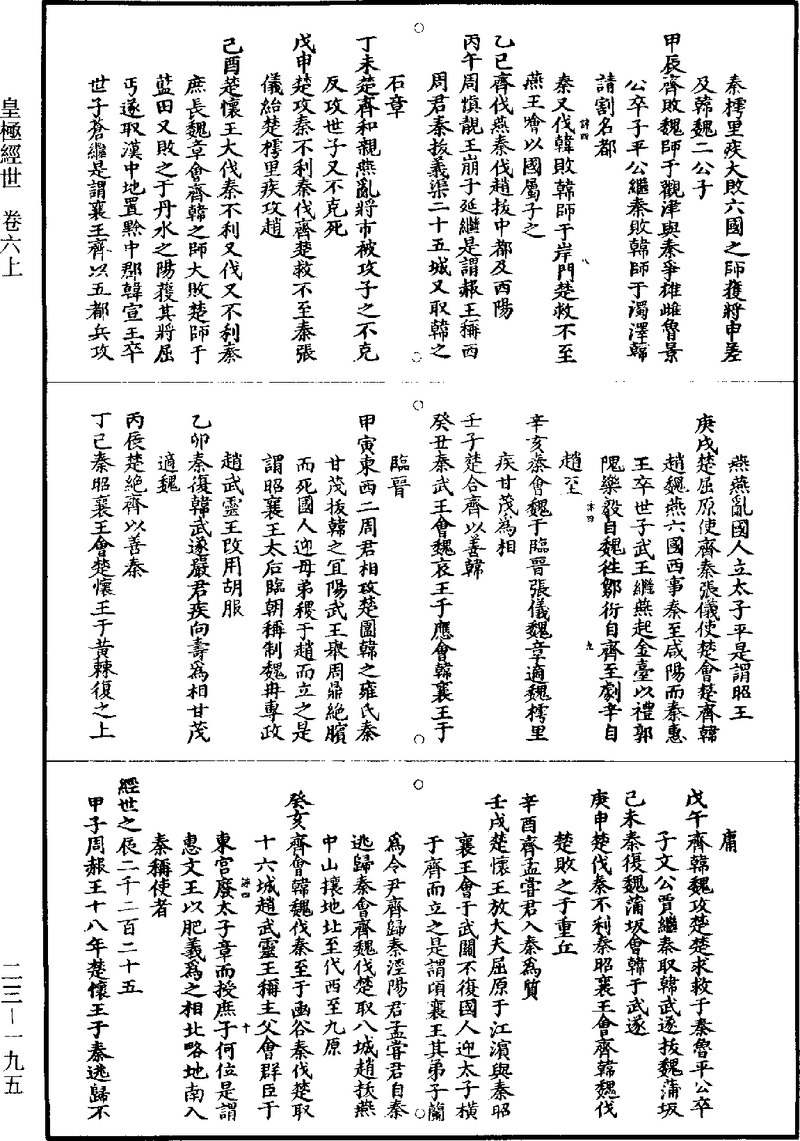 皇極經世 卷六上
二三—一九五
秦樗里疾大敗六國之師獲將申差
及韓魏二公子
甲辰齊敗魏師于觀津與秦爭雄雌魯景
公卒子平公繼秦敗韓師于濁澤韓
請割名都
秦又伐韓敗韓師于岸門楚救不至
燕王噲以國屬子之
乙巳齊伐燕秦伐趙拔中都及西陽
丙午周慎靚王崩子延繼是謂赧王稱西
周君秦拔義渠二十五城又取韓之
石章
丁未楚齊和親燕亂將市被攻子之不克
反攻世子又不克死
戊申楚攻秦不利秦伐齊楚救不至秦張
儀紿楚樗里疾攻趙
己酉楚懷王大伐秦不利又伐又不利秦
庶長魏章會齊韓之師大敗楚師于
藍田又敗之于丹水之陽獲其將屈
丐遂取漢中地置黔中郡韓宣王卒
世子蒼繼是謂襄王齊以五都兵攻
燕燕亂國人立太子平是謂昭王
庚戌楚屈原使齊秦張儀使楚會楚齊韓
趙魏燕六國西事秦至咸陽而秦惠
王卒世子武王繼燕起金臺以禮郭
隗樂毅自魏往鄒衍自齊至劇辛自
趙至
辛亥秦會魏于臨晉張儀魏章適魏樗里
疾甘茂爲相
壬子楚合齊以善韓
癸丑秦武王會魏哀王于應會韓襄王于
臨晉
甲寅東西二周君相攻楚圍韓之雍氏秦
甘茂拔韓之宜陽武王舉周鼎絕臏
而死國人迎母弟稷于趙而立之是
謂昭襄王太后臨朝稱制魏冉專政
趙武靈王改用胡服
乙卯秦復韓武遂嚴君疾向壽爲相甘茂
適魏
丙辰楚絕齊以善秦
丁巳秦昭襄王會楚懷王于黃棘復之上
庸
戊午齊韓魏攻楚楚求救于秦魯平公卒
子文公賈繼秦取韓武遂拔魏蒲坂
己未秦復魏蒲坂會韓于武遂
庚申楚伐秦不利秦昭襄王會齊韓魏伐
楚敗之于重丘
辛酉齊孟嘗君入秦爲質
壬戌楚懷王放大夫屈原于江濱與秦昭
襄王會于武關不復國人迎太子橫
于齊而立之是謂頃襄王其弟子蘭
爲令尹齊歸秦涇陽君孟嘗君自秦
逃歸秦會齊魏伐楚取八城趙扶燕
中山攘地北至代西至九原
癸亥齊會韓魏伐秦至于函谷秦伐楚取
十六城趙武靈王稱主父會群臣于
東宮廢太子章而授庶子何位是謂
惠文王以肥義爲之相北略地南入
秦稱使者
經世之辰二千二百二十五
甲子周赧王十八年楚懷王于秦逃歸不